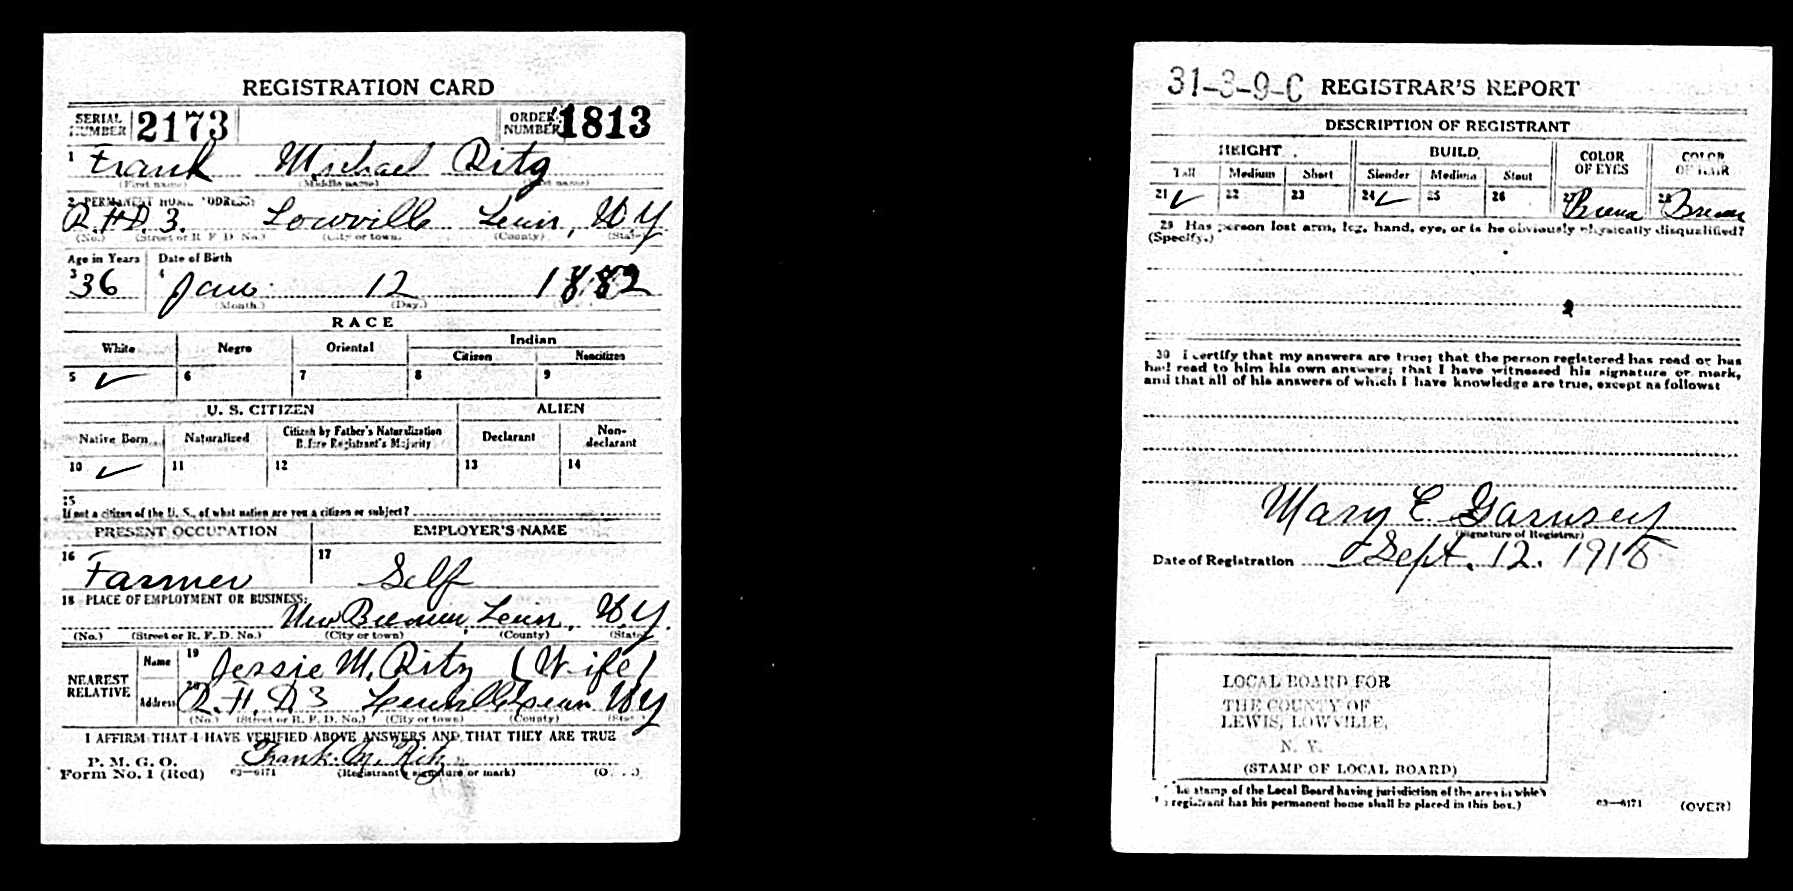 REGISTRATION CARD
SERIAL NUMBER 2173 ORDER NUMBER 1813
1 Frank Michael Ritz
(First name) (Middle name) (Last name)
2 PERMANENT HOME ADDRESS:
R.F.D. 3. Lowville Lewis, N.Y.
(No.) (Street or R. F. D. No.) (City or town) (County) (State)
Age in Years Date of Birth
3 36 4 Jan. 12 1882
(Month.) (Day.)
RACE
White Negro Oriental Indian
Citizen Noncitizen
5 ✓ 6 7 8 9
U. S. CITIZEN ALIEN
Native Born Naturalized Citizen by Father's Naturalization Before Registrant's Majority Declarant Non-declarant
10 ✓ 11 12 13 14
15
If not a citizen of the U. S., of what nation are you a citizen or subject?
PRESENT OCCUPATION EMPLOYER'S NAME
16 Farmer 17 Self
18 PLACE OF EMPLOYMENT OR BUSINESS:
New Bremen, Lewis, N.Y.
(No.) (Street or R. F. D. No.) (City or town) (County) (State)
NEAREST RELATIVE
Name 19 Jessie M. Ritz (Wife)
Address 20 R.F.D. 3 Lowville Lewis N.Y
(No.) (Street or R. F. D. No.) (City or town) (County) (State)
I AFFIRM THAT I HAVE VERIFIED ABOVE ANSWERS AND THAT THEY ARE TRUE
P. M. G. O.
Form No. 1 (Red) 03—6171 Frank M. Ritz
(Registrant's signature or mark) (OVER)
31-3-9-C REGISTRAR'S REPORT
DESCRIPTION OF REGISTRANT
HEIGHT BUILD COLOR OF EYES COLOR OF HAIR
Tall Medium Short Slender Medium Stout
21 ✓ 22 23 24 ✓ 25 26 27 Brown 28 Brown
29 Has person lost arm, leg, hand, eye, or is he obviously physically disqualified?
(Specify.)
30 I certify that my answers are true; that the person registered has read or has
had read to him his own answers; that I have witnessed his signature or mark,
and that all of his answers of which I have knowledge are true, except as follows:
Mary E. Garnsey
(Signature of Registrar)
Date of Registration Sept. 12. 1918
LOCAL BOARD FOR
THE COUNTY OF
LEWIS, LOWVILLE,
N. Y.
(STAMP OF LOCAL BOARD)
The stamp of the Local Board having jurisdiction of the area in which
registrant has his permanent home shall be placed in this box.)
03—6171 (OVER)